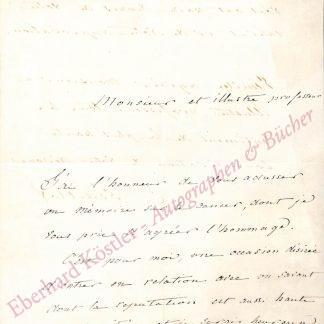 Monsieur et illustre professeur
J'ai l'honneur de vous adresser
un mémoire sur le cancer, dont je
vous prie d'agréer l'hommage.
C'est pour moi, une occasion désirée
d'entrer en relation avec un savant
dont la réputation est aussi haute
Eberhard Köstler - Autographen & Bücher